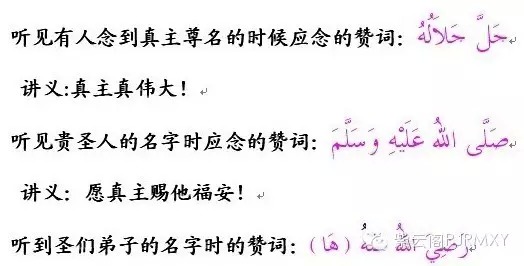 听见有人念到真主尊名的时候应念的赞词：جَلَّ جَلاَلُهُ
讲义:真主真伟大！
听见贵圣人的名字时应念的赞词：صَلَّى اللهُ عَلَيْهِ وَسَلَّمَ
讲义：愿真主赐他福安！
听到圣们弟子的名字时的赞词：رَضِيَ اللهُ (هَا)
云阁PJPMXY